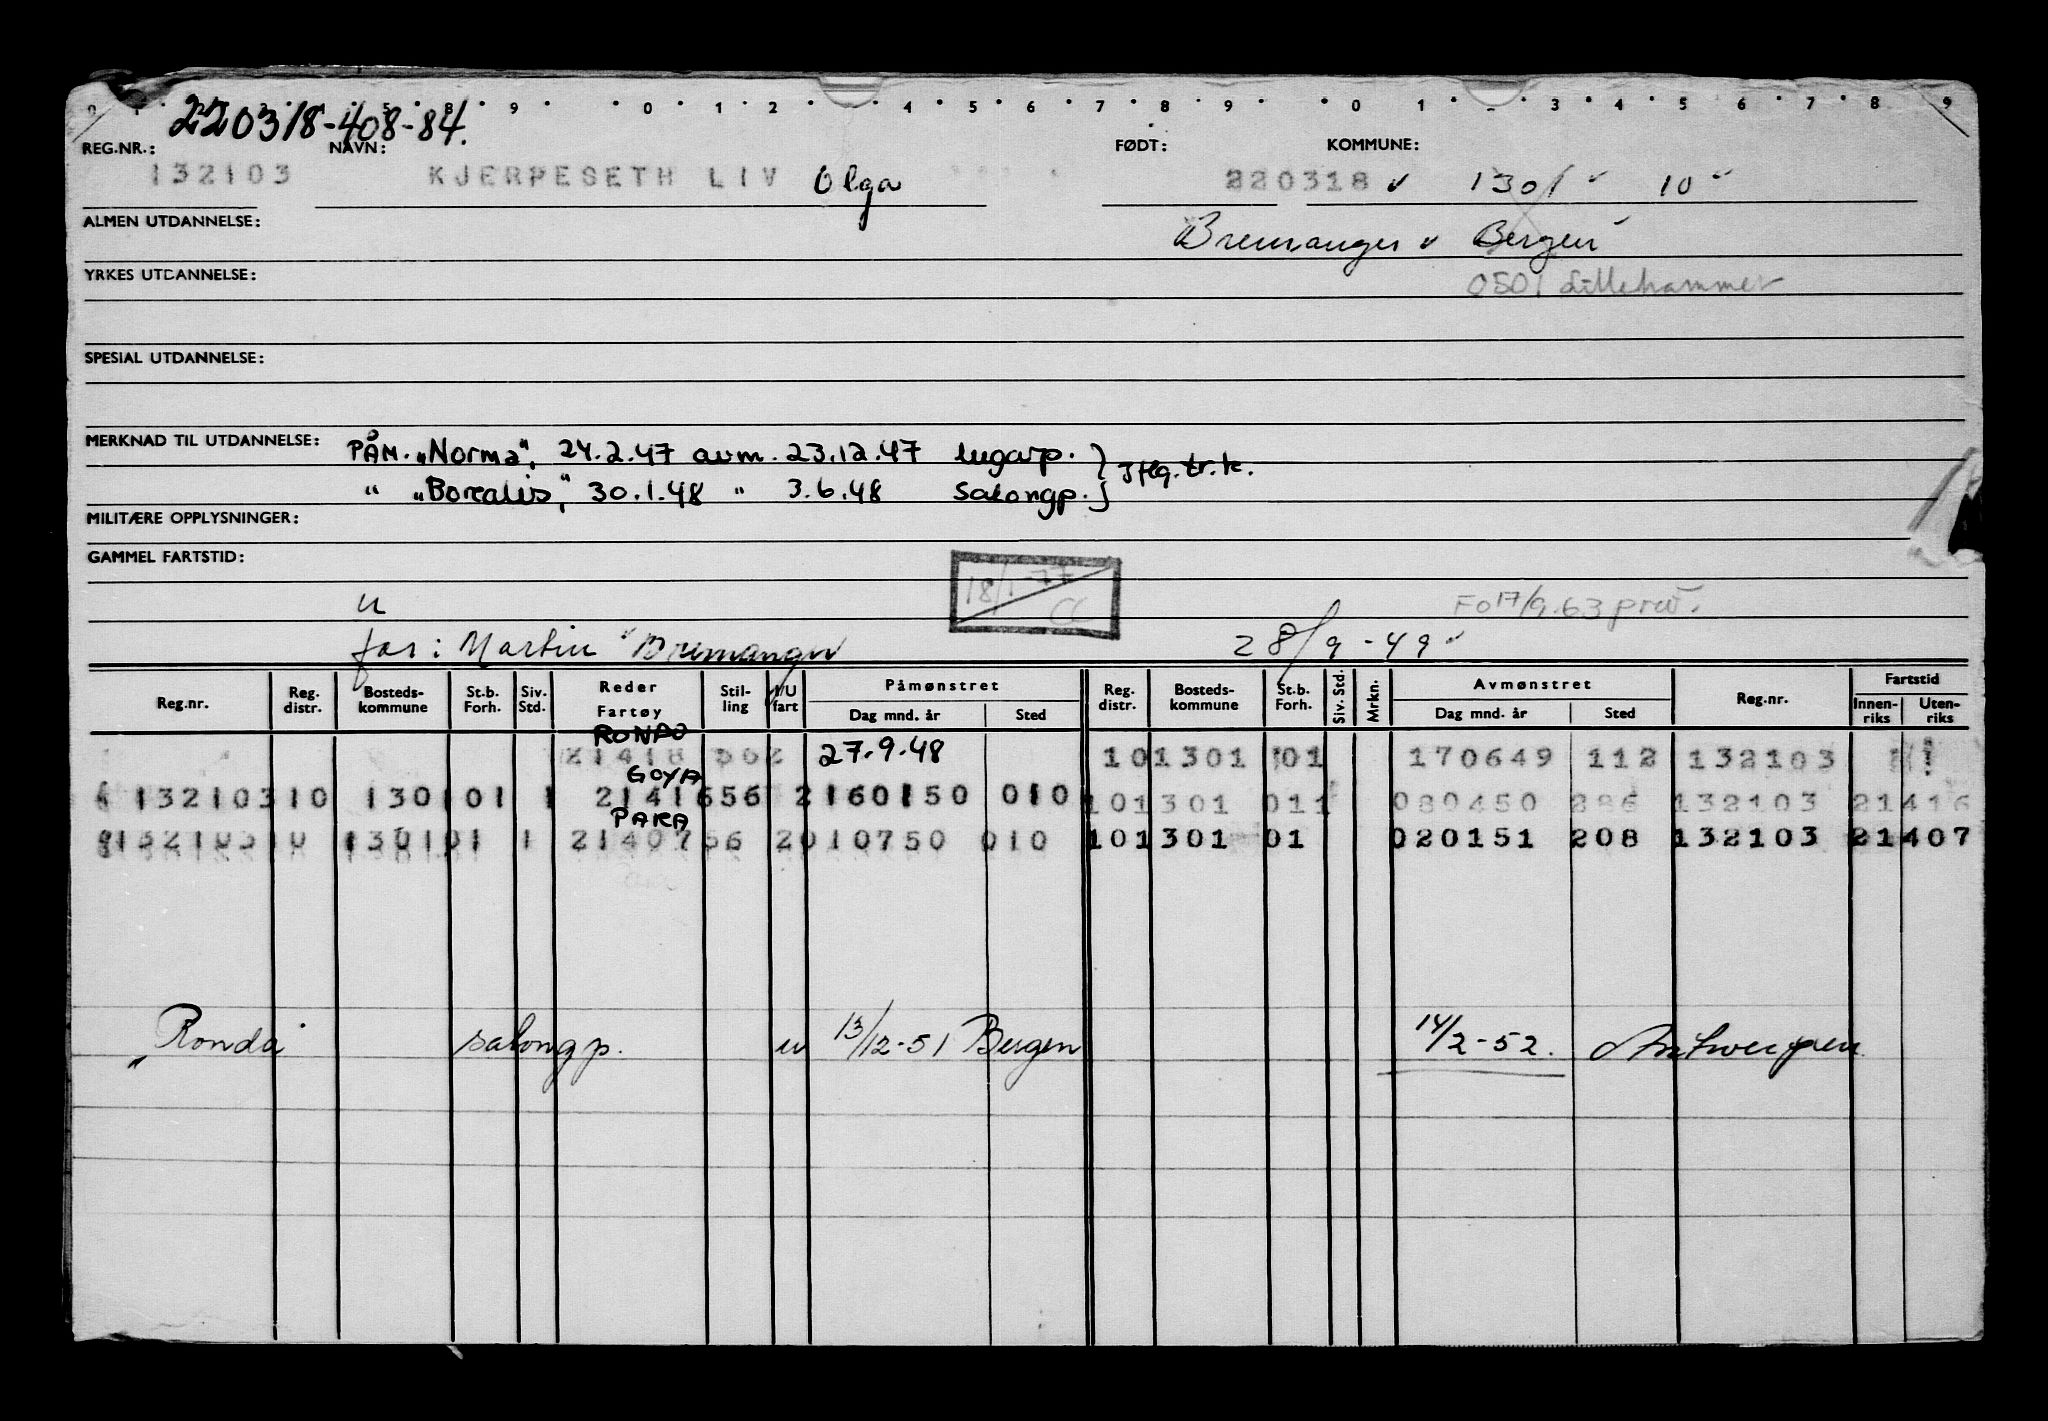 220318-408-84.
REG.NR.: NAVN: FØDT: KOMMUNE:
132103 KJERPESETH LIV Olga 220318 1301 10
ALMEN UTDANNELSE: Bremanger Bergen
YRKES UTDANNELSE: 0501 Lillehammer
SPESIAL UTDANNELSE:
MERKNAD TIL UTDANNELSE: PÅM. „Norma", 24.2.47 avm. 23.12.47 lugarp.
" „Borealis", 30.1.48 " 3.6.48 Salongp. iflg. tr.k.
MILITÆRE OPPLYSNINGER:
GAMMEL FARTSTID:
18/1-77
CC
u Fo 17/9.63 prot.
far: Martin Bremanger 28/9-49
Reg.nr. Reg. distr. Bosteds- kommune St.b. Forh. Siv. Std. Reder Fartøy Stil- ling I/U fart Påmønstret Dag mnd. år Sted Reg. distr. Bosteds- kommune St.b. Forh. Siv. Std. Mrkn. Avmønstret Dag mnd. år Sted Reg.nr. Fartstid Innen- riks Uten- riks
RONDO
21418 562 27.9.48 101301 01 170649 112 132103
GOYA
13210310 130101 1 2141656 2160150 010 101301 011 080450 286 132103 21416
PARA
13210310 130101 1 2140756 2010750 010 101301 01 020151 208 132103 21407
„Ronda salongp. u 13/12-51 Bergen 14/2-52. Antwerpen